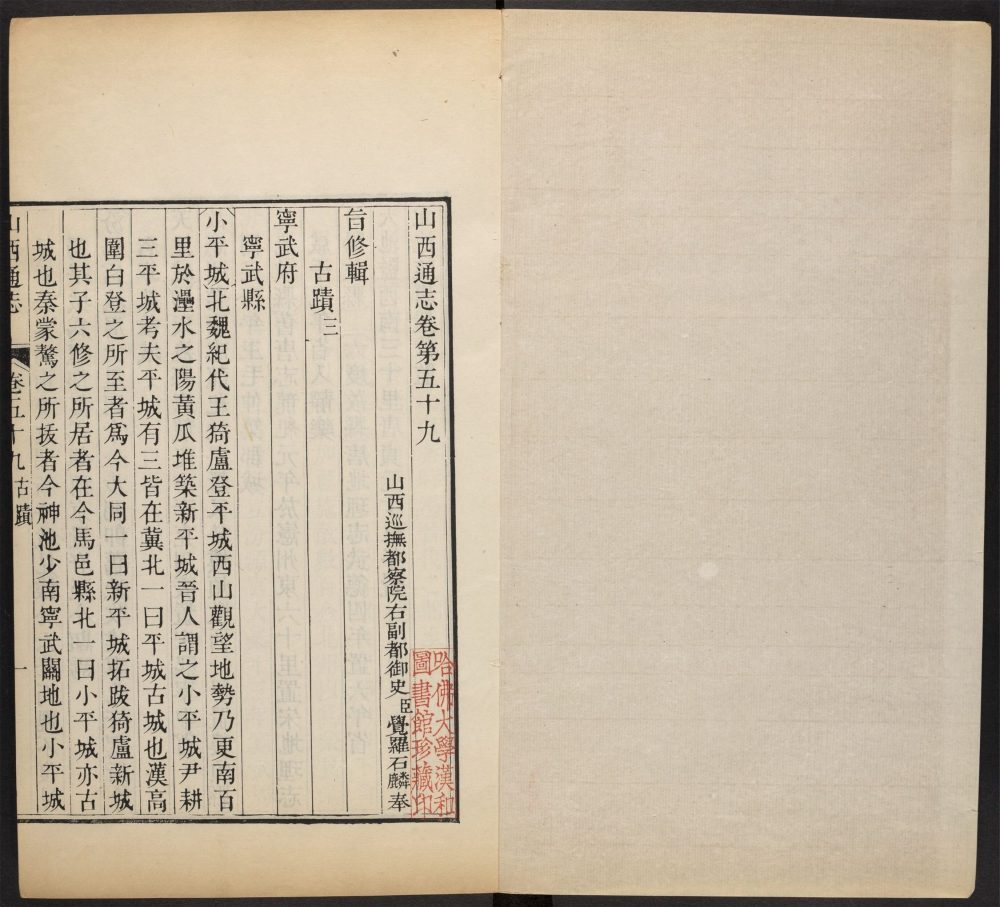 山西通志卷第五十九
山西巡撫都察院右副都御史臣覺羅石麟奉
旨修輯
古蹟三
寧武府
寧武縣
小平城北魏紀代王猗盧登平城西山觀望地勢乃更南百
里於㶟水之陽黃瓜堆築新平城晉人謂之小平城尹耕
三平城考夫平城有三皆在冀北一曰平城古城也漢高
圍白登之所至者爲今大同一曰新平城拓跋猗盧新城
也其子六修之所居者在今馬邑縣北一曰小平城亦古
城也秦蒙驁之所拔者今神池少南寧武關地也小平城
山西通志
卷五十九古蹟
一
哈佛大學漢和
圖書館珍藏印